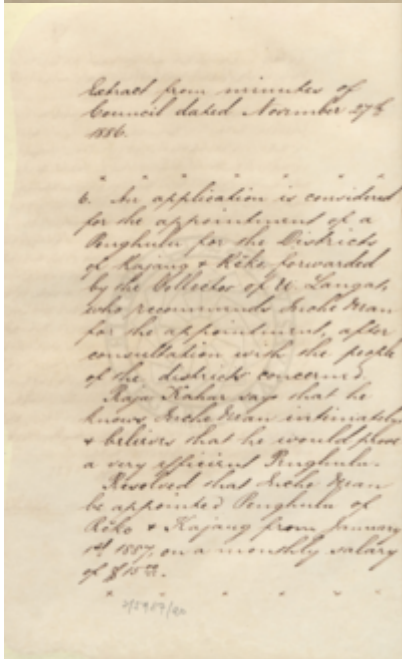 Extract from minutes of
Council dated November 27th
1886.
" " " " " "
6. An application is considered
for the appointment of a
Penghulu for the Districts
of Kajang & Rĕko forwarded
by the Collector of U. Langat,
who recommends Inche Mean
for the appointment, after
consultation with the people
of the districts concerned.
Raja Kahar says that he
knows Inche Mean intimately
& believes that he would prove
a very efficient Penghulu.
Resolved that Inche Mean
be appointed Penghulu of
Rĕko & Kajang from January
1st 1887, on a monthly salary
of $15.00.
" " " " " "